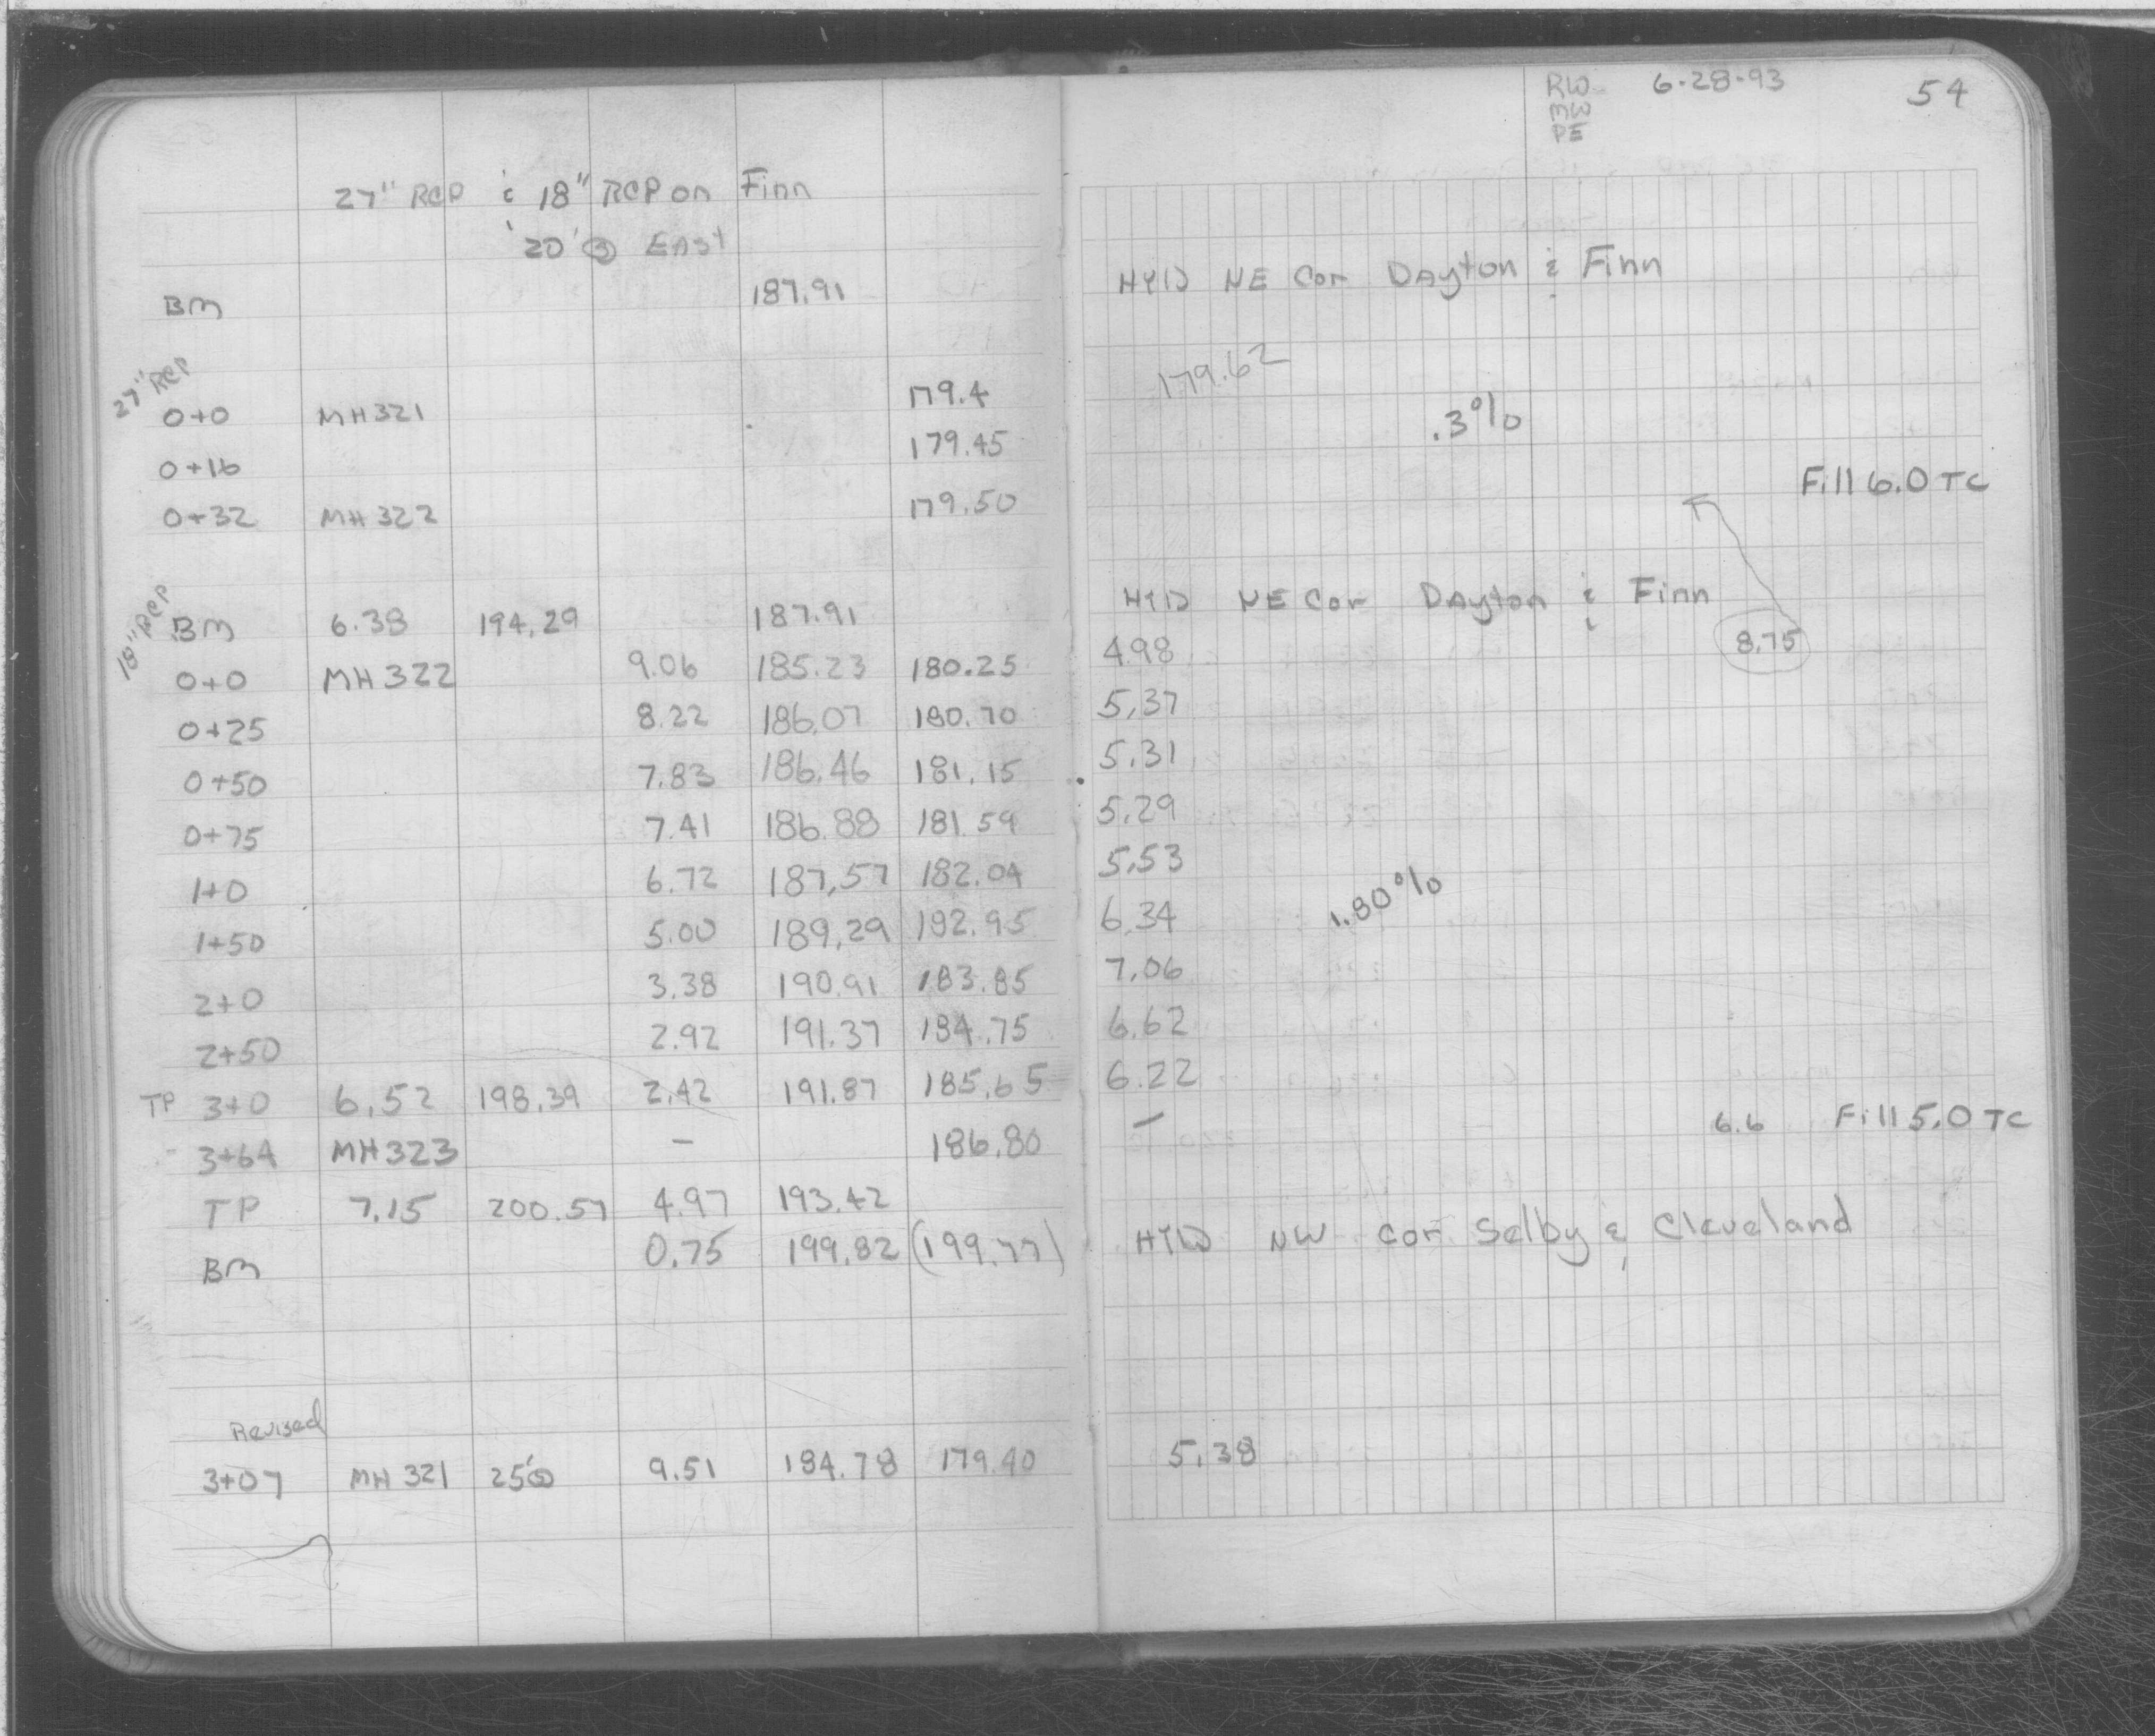 RW 6-28-93 54
MW
PE
27" RCP & 18" RCP on Finn
20' @ EAST
BM 187.91 HYD NE Cor Dayton & Finn
27" RCP
0+0 MH321 179.4 179.62
.3%
0+16 179.45
0+32 MH322 179.50 Fill 6.0 TC
18" RCP
BM 6.38 194.29 187.91 HYD NE Cor Dayton & Finn
8.75
0+0 MH322 9.06 185.23 180.25 4.98
0+25 8.22 186.07 180.70 5.37
0+50 7.83 186.46 181.15 5.31
0+75 7.41 186.88 181.59 5.29
1+0 6.72 187.57 182.04 5.53
1.80%
1+50 5.00 189.29 182.95 6.34
2+0 3.38 190.91 183.85 7.06
2+50 2.92 191.37 184.75 6.62
TP 3+0 6.52 198.39 2.42 191.87 185.65 6.22
3+64 MH323 – 186.80 – 6.6 Fill 5.0 TC
TP 7.15 200.57 4.97 193.42
BM 0.75 199.82 (199.77) HYD NW Cor Selby & Cleveland
Revised
3+07 MH 321 25' 9.51 184.78 179.40 5.38